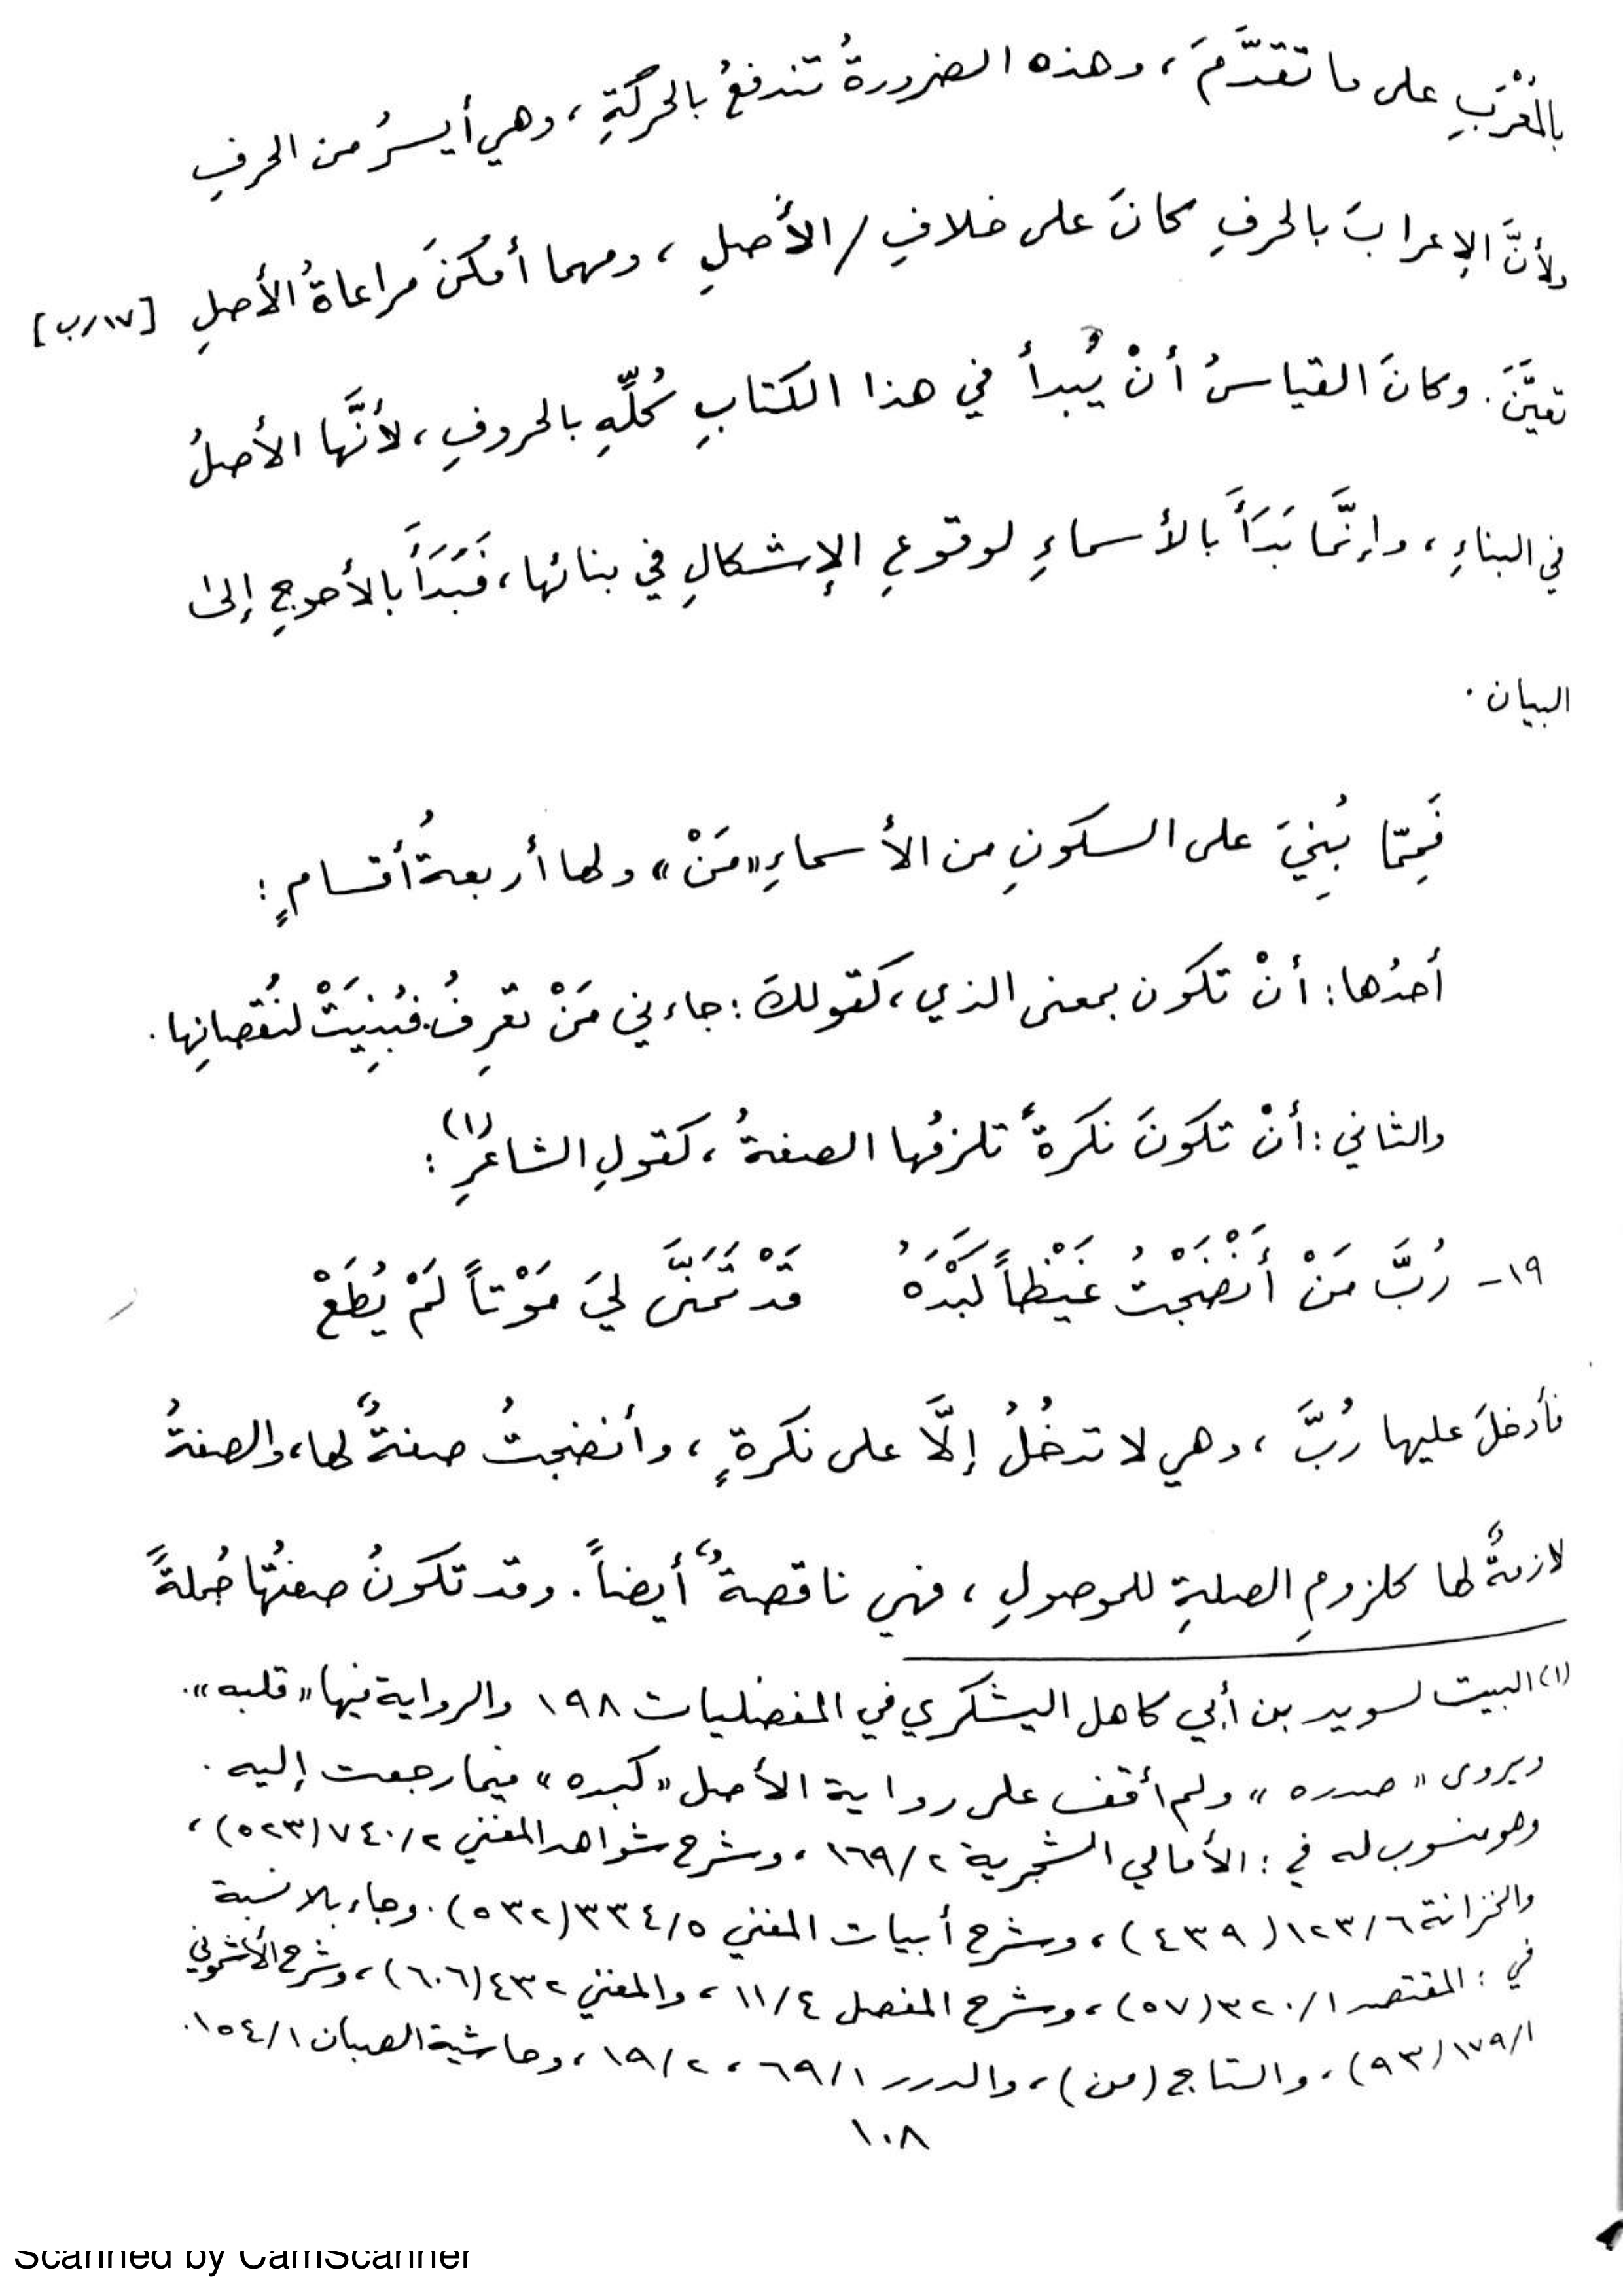 بالمُعْرَبِ على ما تقدَّمَ، وهذه الضرورةُ تندفعُ بالحركةِ، وهي أيسرُ من الحرفِ
ولأنَّ الإعرابَ بالحرفِ كانَ على خلافِ / الأصلِ، ومهما أمكنَ مراعاةُ الأصلِ [١٧/ب]
تعيَّنَ. وكانَ القياسُ أنْ يُبدأ في هذا الكتابِ كُلِّهِ بالحروفِ، لأنَّها الأصلُ
في البناءِ، وإنَّما بَدَأَ بالأسماءِ لوقوعِ الإشكالِ في بنائها، فَبَدَأَ بالأحوجِ إلى
البيان.
فَمِمّا بُنِيَ على السكونِ من الأسماءِ «مَنْ» ولها أربعةُ أقسامٍ:
أحدُها: أنْ تكون بمعنى الذي، كقولكَ: جاءني مَنْ تعرِفُ. فبُنِيَتْ لنُقصانِها.
والثاني: أنْ تكونَ نكرةً تلزمُها الصفةُ، كقولِ الشاعرِ(١):
١٩- رُبَّ مَنْ أَنْضَجْتُ غَيْظاً كَبْدَهُ قَدْ تَمَنَّى لِيَ مَوْتاً لَمْ يُطَعْ
فأدخلَ عليها رُبَّ، وهي لا تدخُلُ إلَّا على نكرةٍ، وأنضجتُ صفةٌ لها، والصفةُ
لازمةٌ لها كلزومِ الصلةِ للموصولِ، فهي ناقصةٌ أيضاً. وقد تكونُ صفتُها جُملةً
(١) البيت لسويد بن أبي كاهل اليشكري في المفضليات ١٩٨ والرواية فيها «قلبه».
ويروى «صدره» ولم أقف على رواية الأصل «كبده» فيما رجعت إليه.
وهو منسوب له في: الأمالي الشجرية ٢/١٦٩، وشرح شواهد المغني ٢/٧٤٠ (٥٢٣)،
والخزانة ٦/١٢٣ (٤٣٩)، وشرح أبيات المغني ٥/٣٣٤ (٥٣٢). وجاء بلا نسبة
في: المقتصد ١/٣٢٠ (٥٧)، وشرح المفصل ٤/١١، والمغني ٤٣٢ (٦٠٦)، وشرح الأشموني
١/١٧٩ (٩٣)، والتاج (من)، والدرر ١/٦٩، ٢/١٩، وحاشية الصبان ١/١٥٤.
١٠٨
Scanned by CamScanner